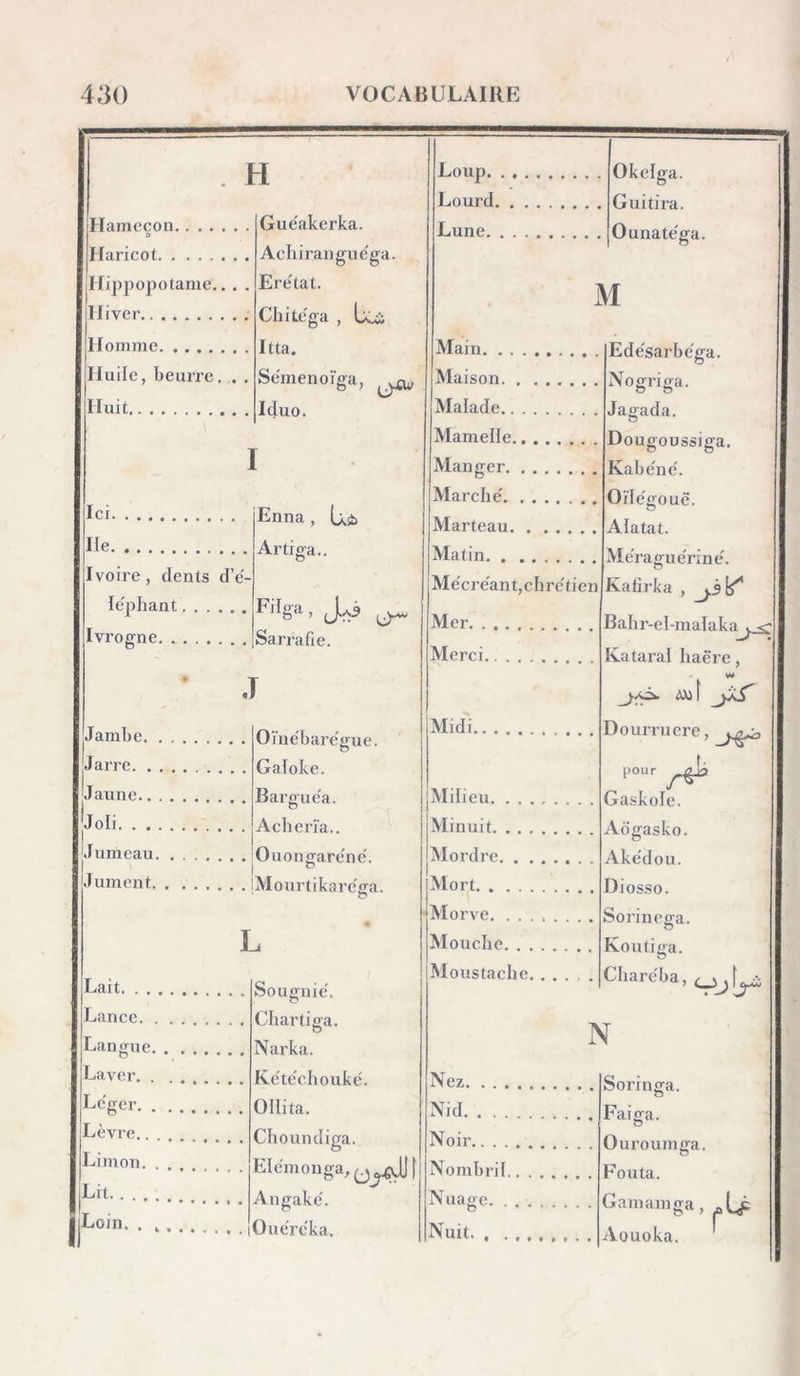 430 VOCABULAIRE
H
Hameçon....... Guéakerka.
Haricot........ Achiranguéga.
Hippopotame.... Erétat.
Hiver.......... Chitéga , شتا
Homme........ Itta.
Huile, beurre... Sémenoïga, سمن
Huit........... Iduo.
I
Ici........... Enna, هنا
Ile............ Artiga..
Ivoire, dents d'é-
léphant...... Filga, سن فيل
Ivrogne........ Sarrafie.
J
Jambe......... Oïnébarégue.
Jarre.......... Galoke.
Jaune.......... Barguéa.
Joli........... Acherïa..
Jumeau........ Ouongaréné.
Jument........ Mourtikaréga.
L
Lait........... Sougnié.
Lance......... Chartiga.
Langue........ Narka.
Laver......... Kétéchouké.
Léger......... Ollita.
Lèvre.......... Choundiga.
Limon......... Elémonga, الليمون
Lit........... Angaké.
Loin.......... Ouéréka.
Loup.......... Okelga.
Lourd......... Guitira.
Lune.......... Ounatéga.
M
Main.......... Edésarbéga.
Maison........ Nogriga.
Malade......... Jagada.
Mamelle........ Dougoussiga.
Manger........ Kabéné.
Marché........ Oïlégouë.
Marteau....... Alatat.
Matin......... Méraguériné.
Mécréant,chrétien Kafirka , كافر
Mer........... Bahr-el-malaka بحر
Merci.......... Kataral haëre,
كثر الله خير
Midi........... Dourruere, ضهر
pour ظهر
Milieu......... Gaskole.
Minuit......... Aögasko.
Mordre........ Akédou.
Mort.......... Diosso.
Morve......... Sorinega.
Mouche........ Koutiga.
Moustache...... Charéba, شوارب
N
Nez........... Soringa.
Nid........... Faiga.
Noir........... Ouroumga.
Nombril........ Fouta.
Nuage......... Gamamga, غمام
Nuit.......... Aouoka.